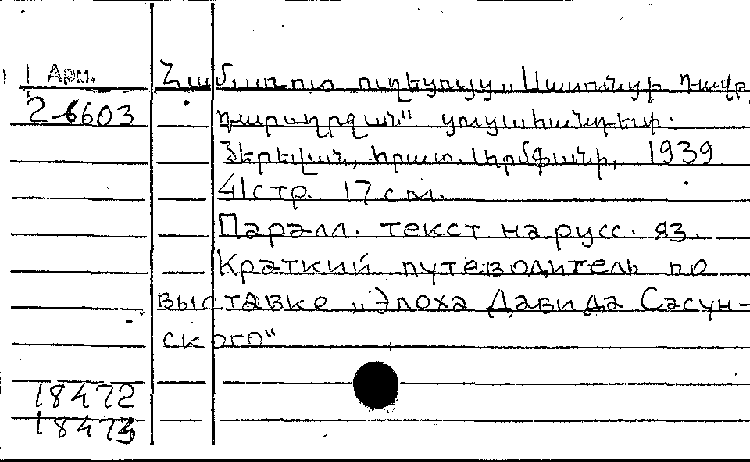 Арм.
2-6603
Համառոտ ուղեցույց „Սասունցի Դավթի
դարաշրջան" ցուցահանդեսի.
Երևան, հրատ. Արմֆանի, 1939
41 стр. 17 см.
Паралл. текст на русс. яз.
Краткий путеводитель по
выставке „Эпоха Давида Сасун-
ского"
18472
18473